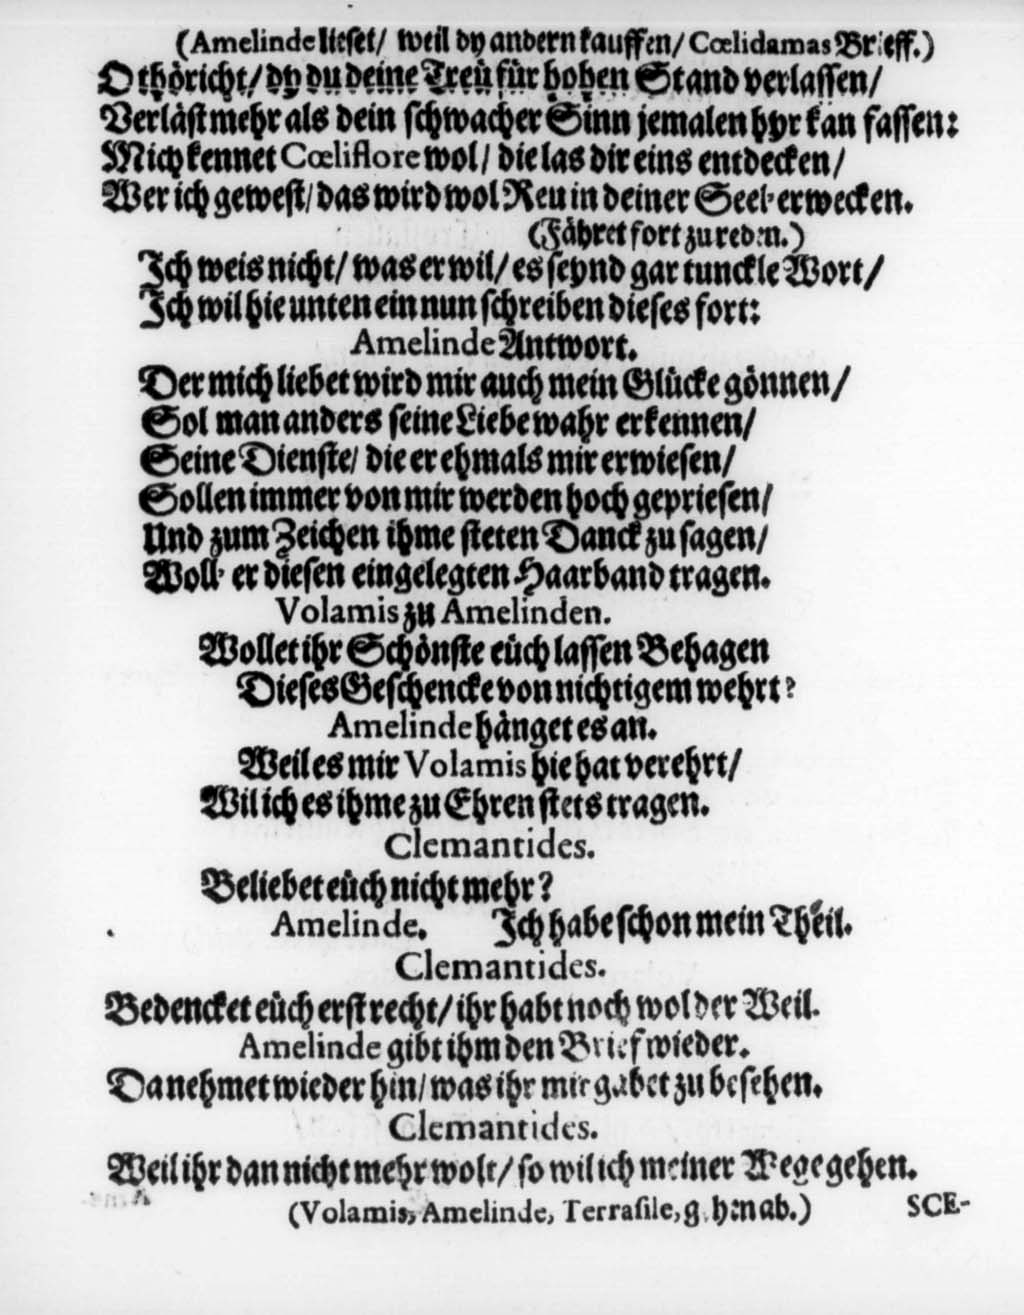 (Amelinde lieset/ weil dy andern kauffen/ Cœlidamas Brieff.)
O thöricht/ dy du deine Treü für hohen Stand verlassen/
Verläst mehr als dein schwacher Sinn jemalen hyr kan fassen:
Mich kennet Cœliflore wol/ die las dir eins entdecken/
Wer ich gewest/ das wird wol Reu in deiner Seel' erwecken.
(Fähret fort zu reden.)
Ich weis nicht/ was er wil/ es seynd gar tunckle Wort/
Ich wil hie unten ein nun schreiben dieses fort:
Amelinde Antwort.
Der mich liebet wird mir auch mein Glücke gönnen/
Sol man anders seine Liebe wahr erkennen/
Seine Dienste/ die er ehmals mir erwiesen/
Sollen immer von mir werden hoch gepriesen/
Und zum Zeichen ihme steten Danck zu sagen/
Woll' er diesen eingelegten Haarband tragen.
Volamis zu Amelinden.
Wollet ihr Schönste eüch lassen Behagen
Dieses Geschencke von nichtigem wehrt?
Amelinde hänget es an.
Weil es mir Volamis hie hat verehrt/
Wil ich es ihme zu Ehren stets tragen.
Clemantides.
Beliebet eüch nicht mehr?
Amelinde. Ich habe schon mein Theil.
Clemantides.
Bedencket eüch erst recht/ ihr habt noch wol der Weil.
Amelinde gibt ihm den Brief wieder.
Da nehmet wieder hin/ was ihr mir gabet zu besehen.
Clemantides.
Weil ihr dan nicht mehr wolt/ so wil ich meiner Wege gehen.
(Volamis, Amelinde, Terrasile, gehen ab.)
SCE-